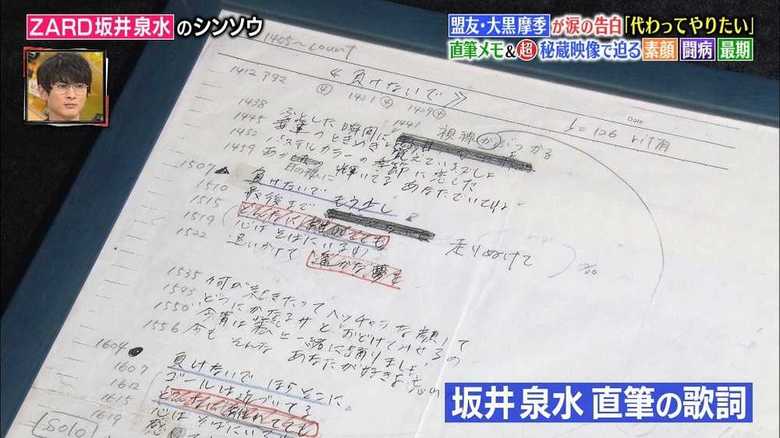 ZARD坂井泉水のシンソウ
盟友・大黒摩季が涙の告白「代わってやりたい」
直筆メモ&超秘蔵映像で迫る 素顔 闘病 最期
1405~count
負けないで
1412
1438 ふとした瞬間に 視線がぶつかる
のときめき 覚えているでしょ
1452 パステルカラーの季節に恋した
1459 あの日のように 輝いてる あなたでいてね
1507 負けないで もう少し
1510 最後まで 走りぬけて
1515 どんなに 離れてても
1519 心はそばにいるわ
1522 追いかけて 遥かな夢を
1535 何が起きたって ヘッチャラな顔して
どうにかなるサと おどけてみせるの
1550 今宵は私と一緒に踊りましょ
1556 今も そんな あなたが好きよ
1604 負けないで ほらそこに
1607 ゴールは近づいてる
1612 どんなに 離れてても
1615 心はそばにいて
1619
SOLO
坂井泉水 直筆の歌詞